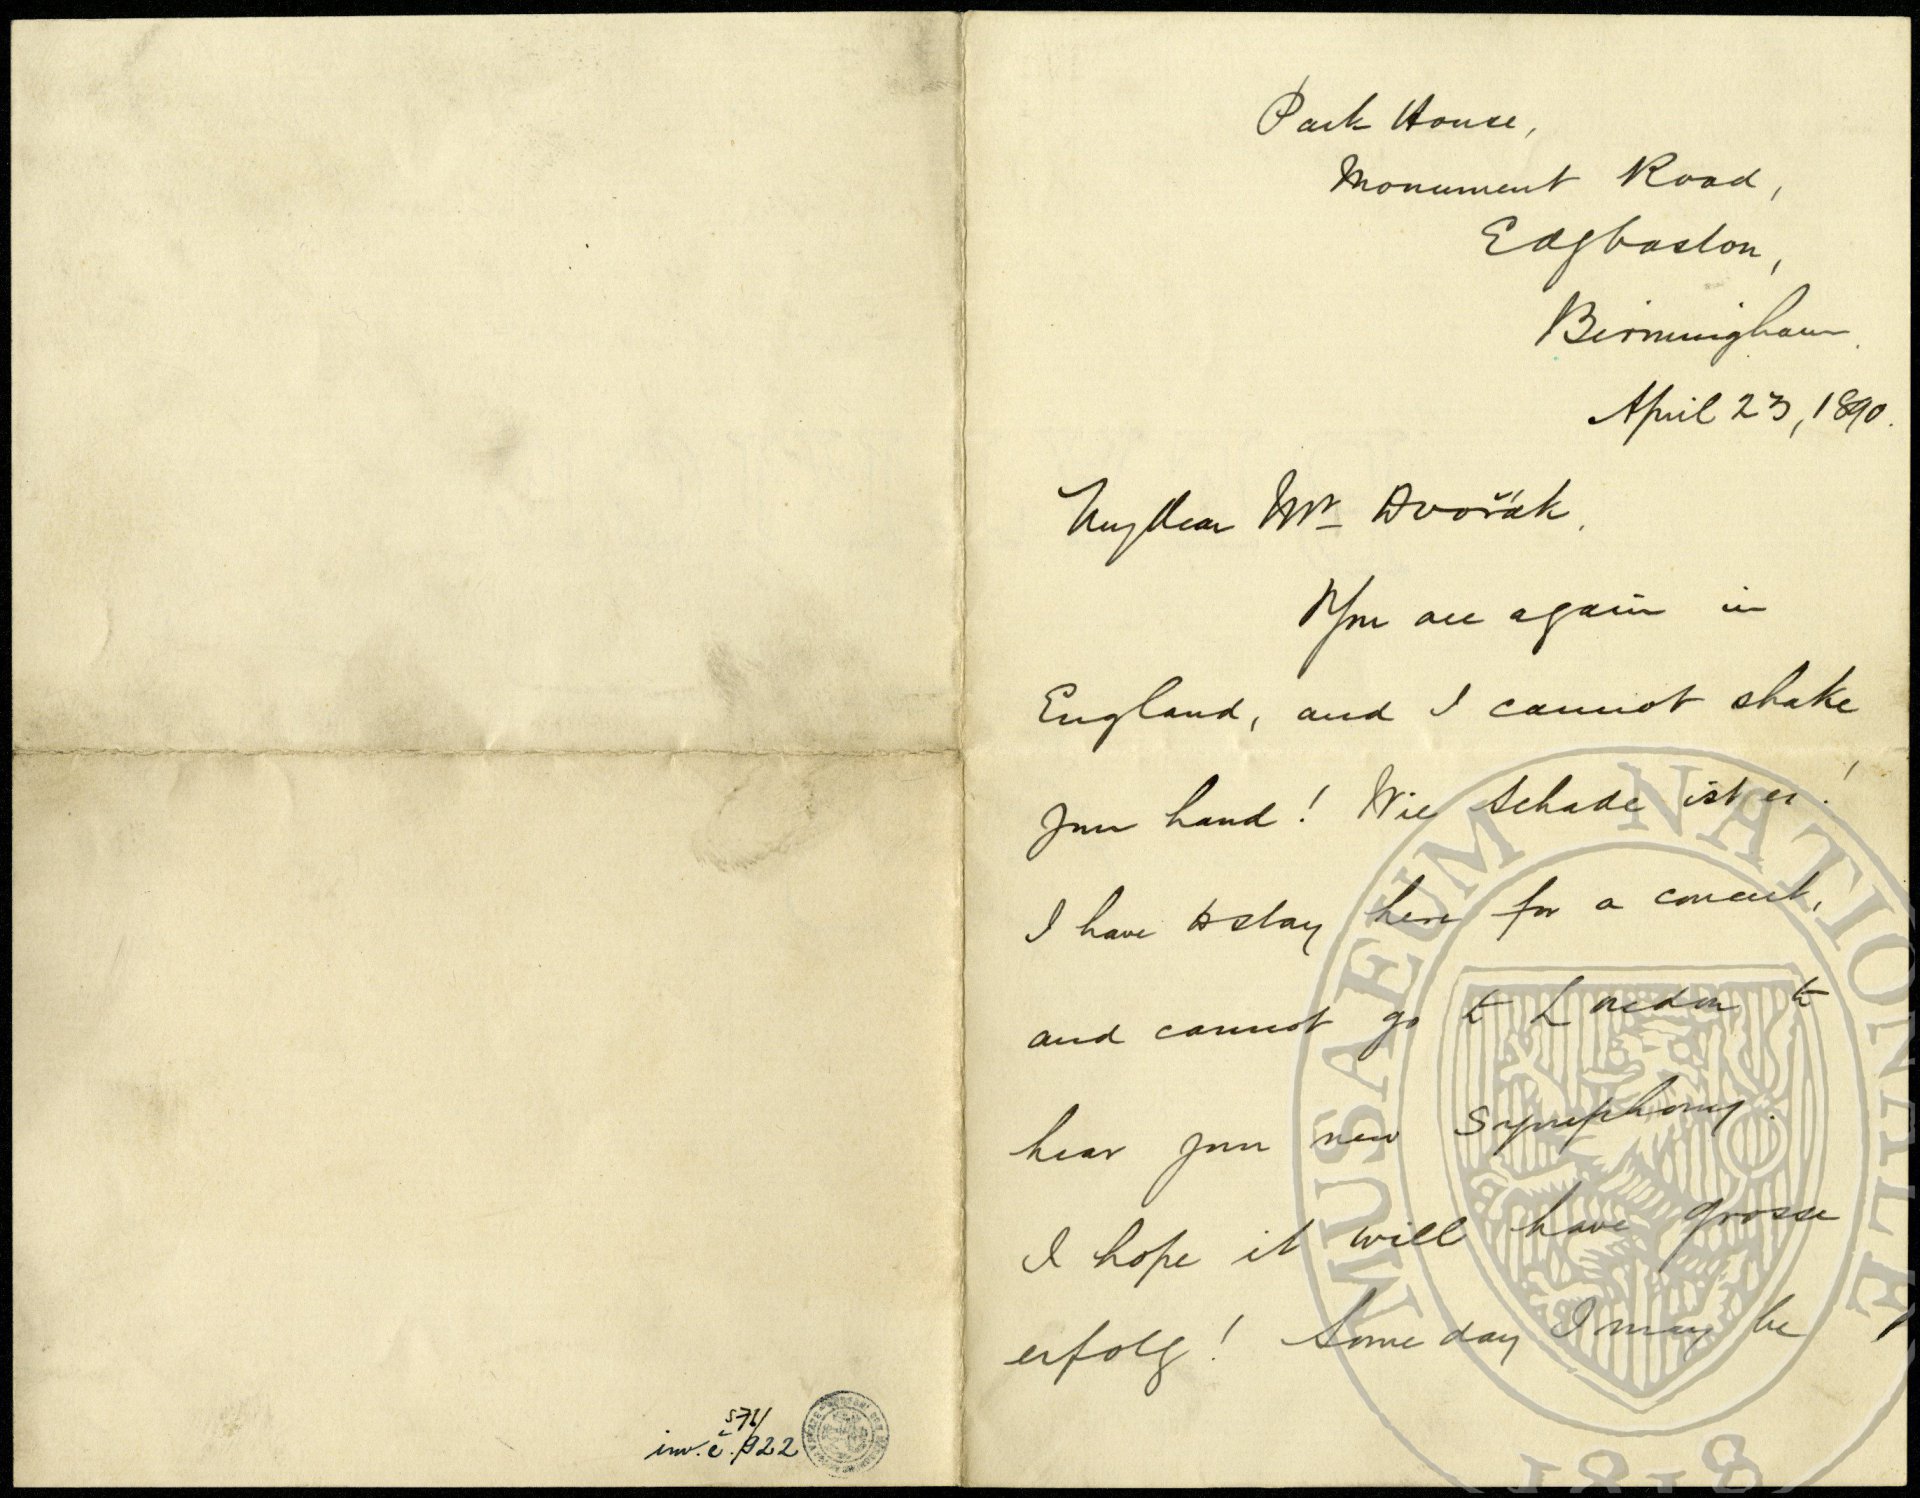 Park House,
Monument Road,
Edgbaston,
Birmingham.
April 23, 1890.
My dear Mr Dvořák.
You are again in
England, and I cannot shake
your hand! Wie Schade ist es!
I have to stay here for a concert,
and cannot go to London to
hear your new Symphony.
I hope it will have grosse
erfolg! Some day I may be
S76/
inv. č. 922
MUSAEUM NATIONALE
1818